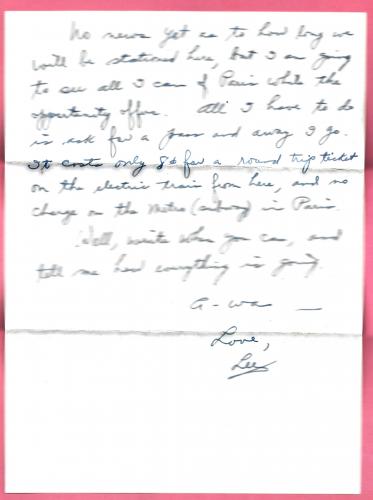 No news yet as to how long we
will be stationed here, but I am going
to see all I can of Paris while the
opportunity offers. All I have to do
is ask for a pass and away I go.
It costs only 8¢ for a round trip ticket
on the electric train from here, and no
charge on the Metro (subway) in Paris.
Well, write when you can, and
tell me how everything is going.
Love,
Lee